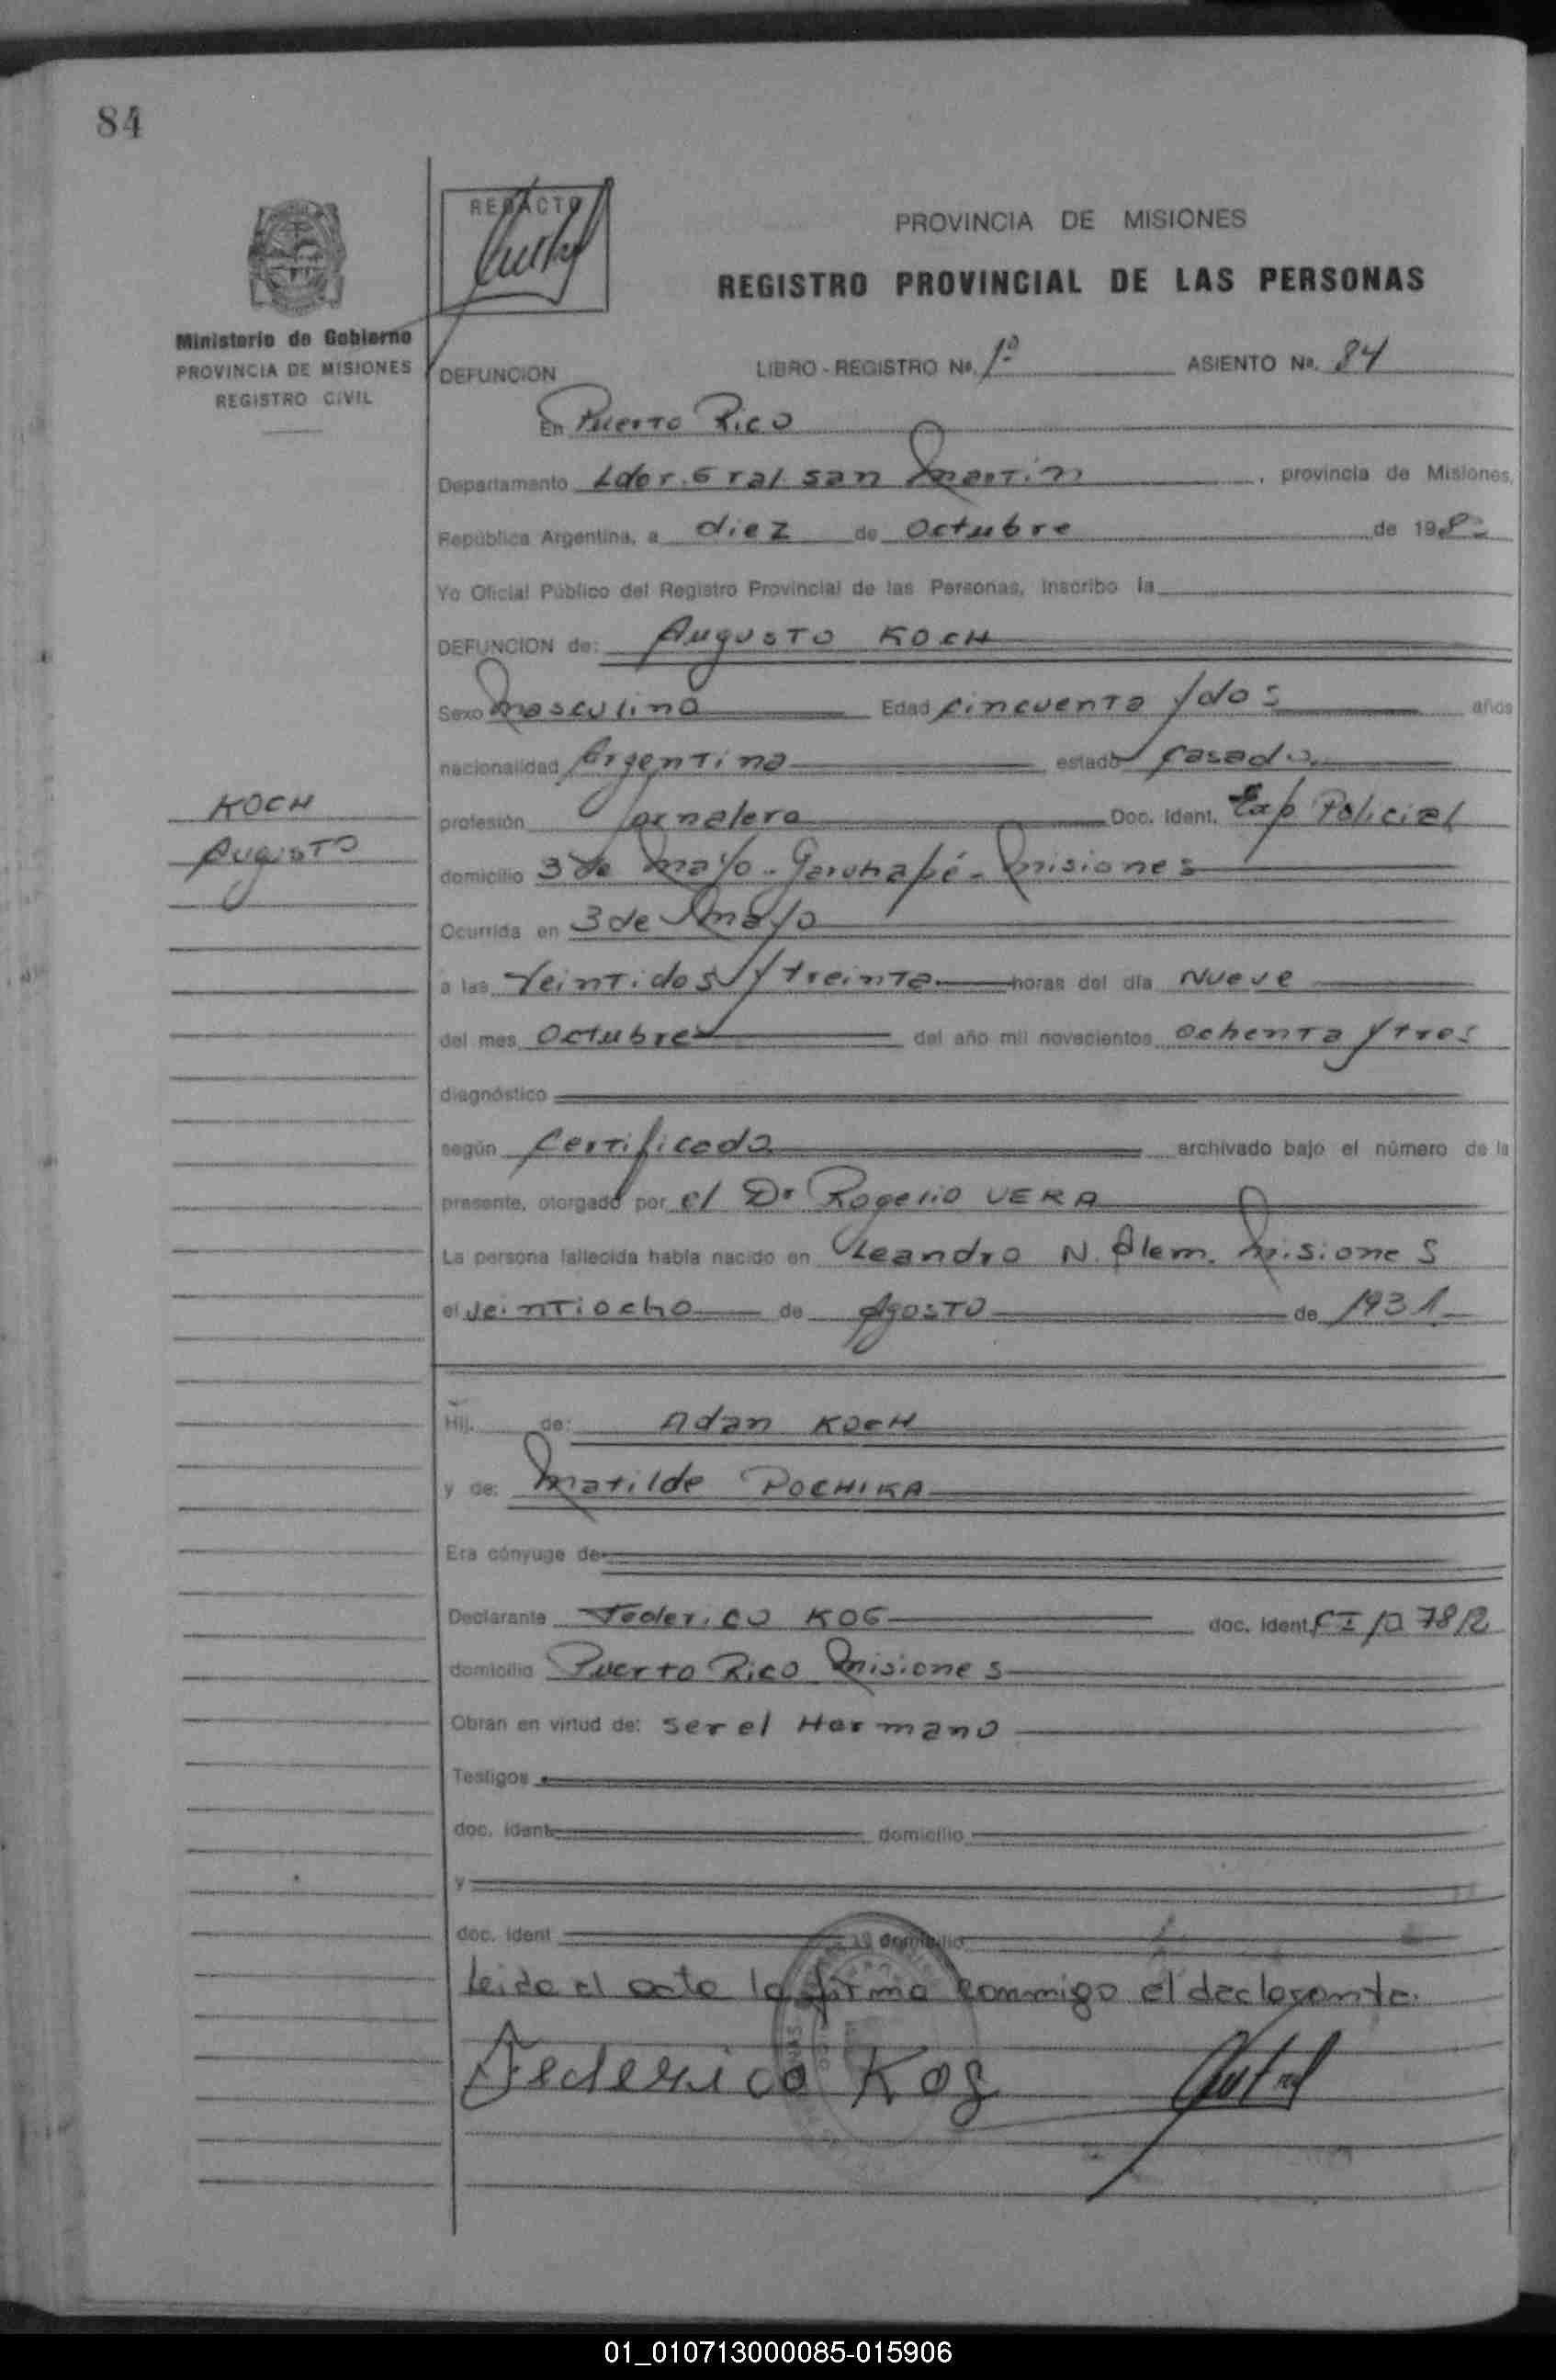 84
REDACTO
PROVINCIA DE MISIONES
REGISTRO PROVINCIAL DE LAS PERSONAS
Ministerio de Gobierno
PROVINCIA DE MISIONES
REGISTRO CIVIL
DEFUNCION LIBRO - REGISTRO Nº. 1º ASIENTO Nº. 84
En Puerto Rico
Departamento Ldor. Gral. San Martin, provincia de Misiones,
República Argentina, a diez de Octubre de 198
Yo Oficial Público del Registro Provincial de las Personas, inscribo la
DEFUNCION de: Augusto KOCH
Sexo Masculino Edad Cincuenta y dos años
nacionalidad Argentina estado Casado
KOCH
Augusto
profesión Jornalero Doc. Ident. Exp Policial
domicilio 3 de Mayo - Garuhapé - Misiones
Ocurrida en 3 de Mayo
a las Veintidos y treinta horas del día Nueve
del mes Octubre del año mil novecientos ochenta y tres
diagnóstico
según Certificado archivado bajo el número de la
presente, otorgado por el Dr Rogelio VERA
La persona fallecida había nacido en Leandro N. Alem. Misiones
el veintiocho de Agosto de 1931
Hij. de: Adan KOCH
y de: Matilde POCHIKA
Era cónyuge de
Declarante Federico KOG doc. Ident. CI
domicilio Puerto Rico Misiones
Obran en virtud de: ser el Hermano
Testigos
doc. ident. domicilio
y
doc. ident domicilio
Leida el acta la firma conmigo el declarante.
Federico Kog
01_010713000085-015906